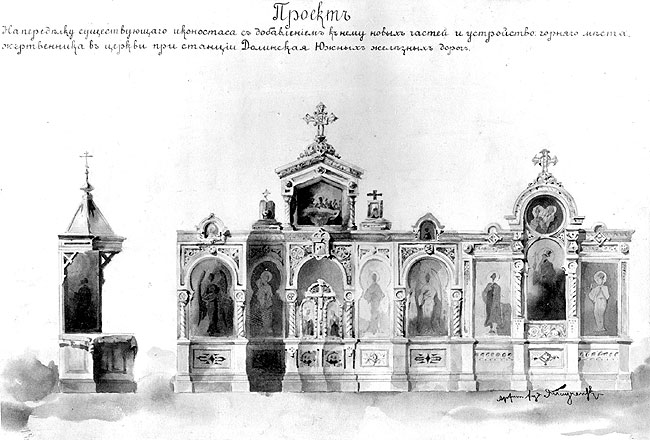 Проектъ
На передѣлку существующаго иконостаса съ добавленіемъ къ нему новыхъ частей и устройство горняго мѣста.
жертвенника въ церкви при станціи Долинская Южныхъ желѣзныхъ дорогъ.